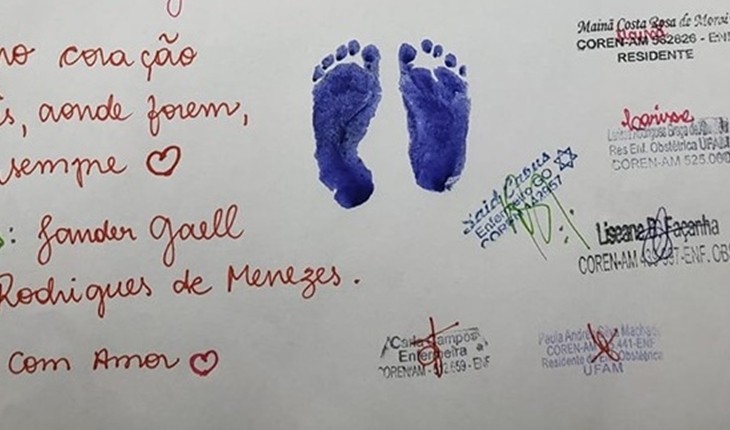 no coração
is, aonde forem,
sempre
: Jander Gaell
Rodrigues de Menezes.
Com Amor
Mainã Costa Rosa de Morai
COREN-AM 562626 - ENF
RESIDENTE
Larisse
Res Enf. Obstétrica UFAM
COREN-AM 525.000
Enfermeiro GO
Liseana B. Façanha
COREN-AM ENF. OBS
Carla Campos
Enfermeira
COREN/AM - ENF
Paula André Silva Machado
COREN-AM 441-ENF
Residente Obstétrica
UFAM